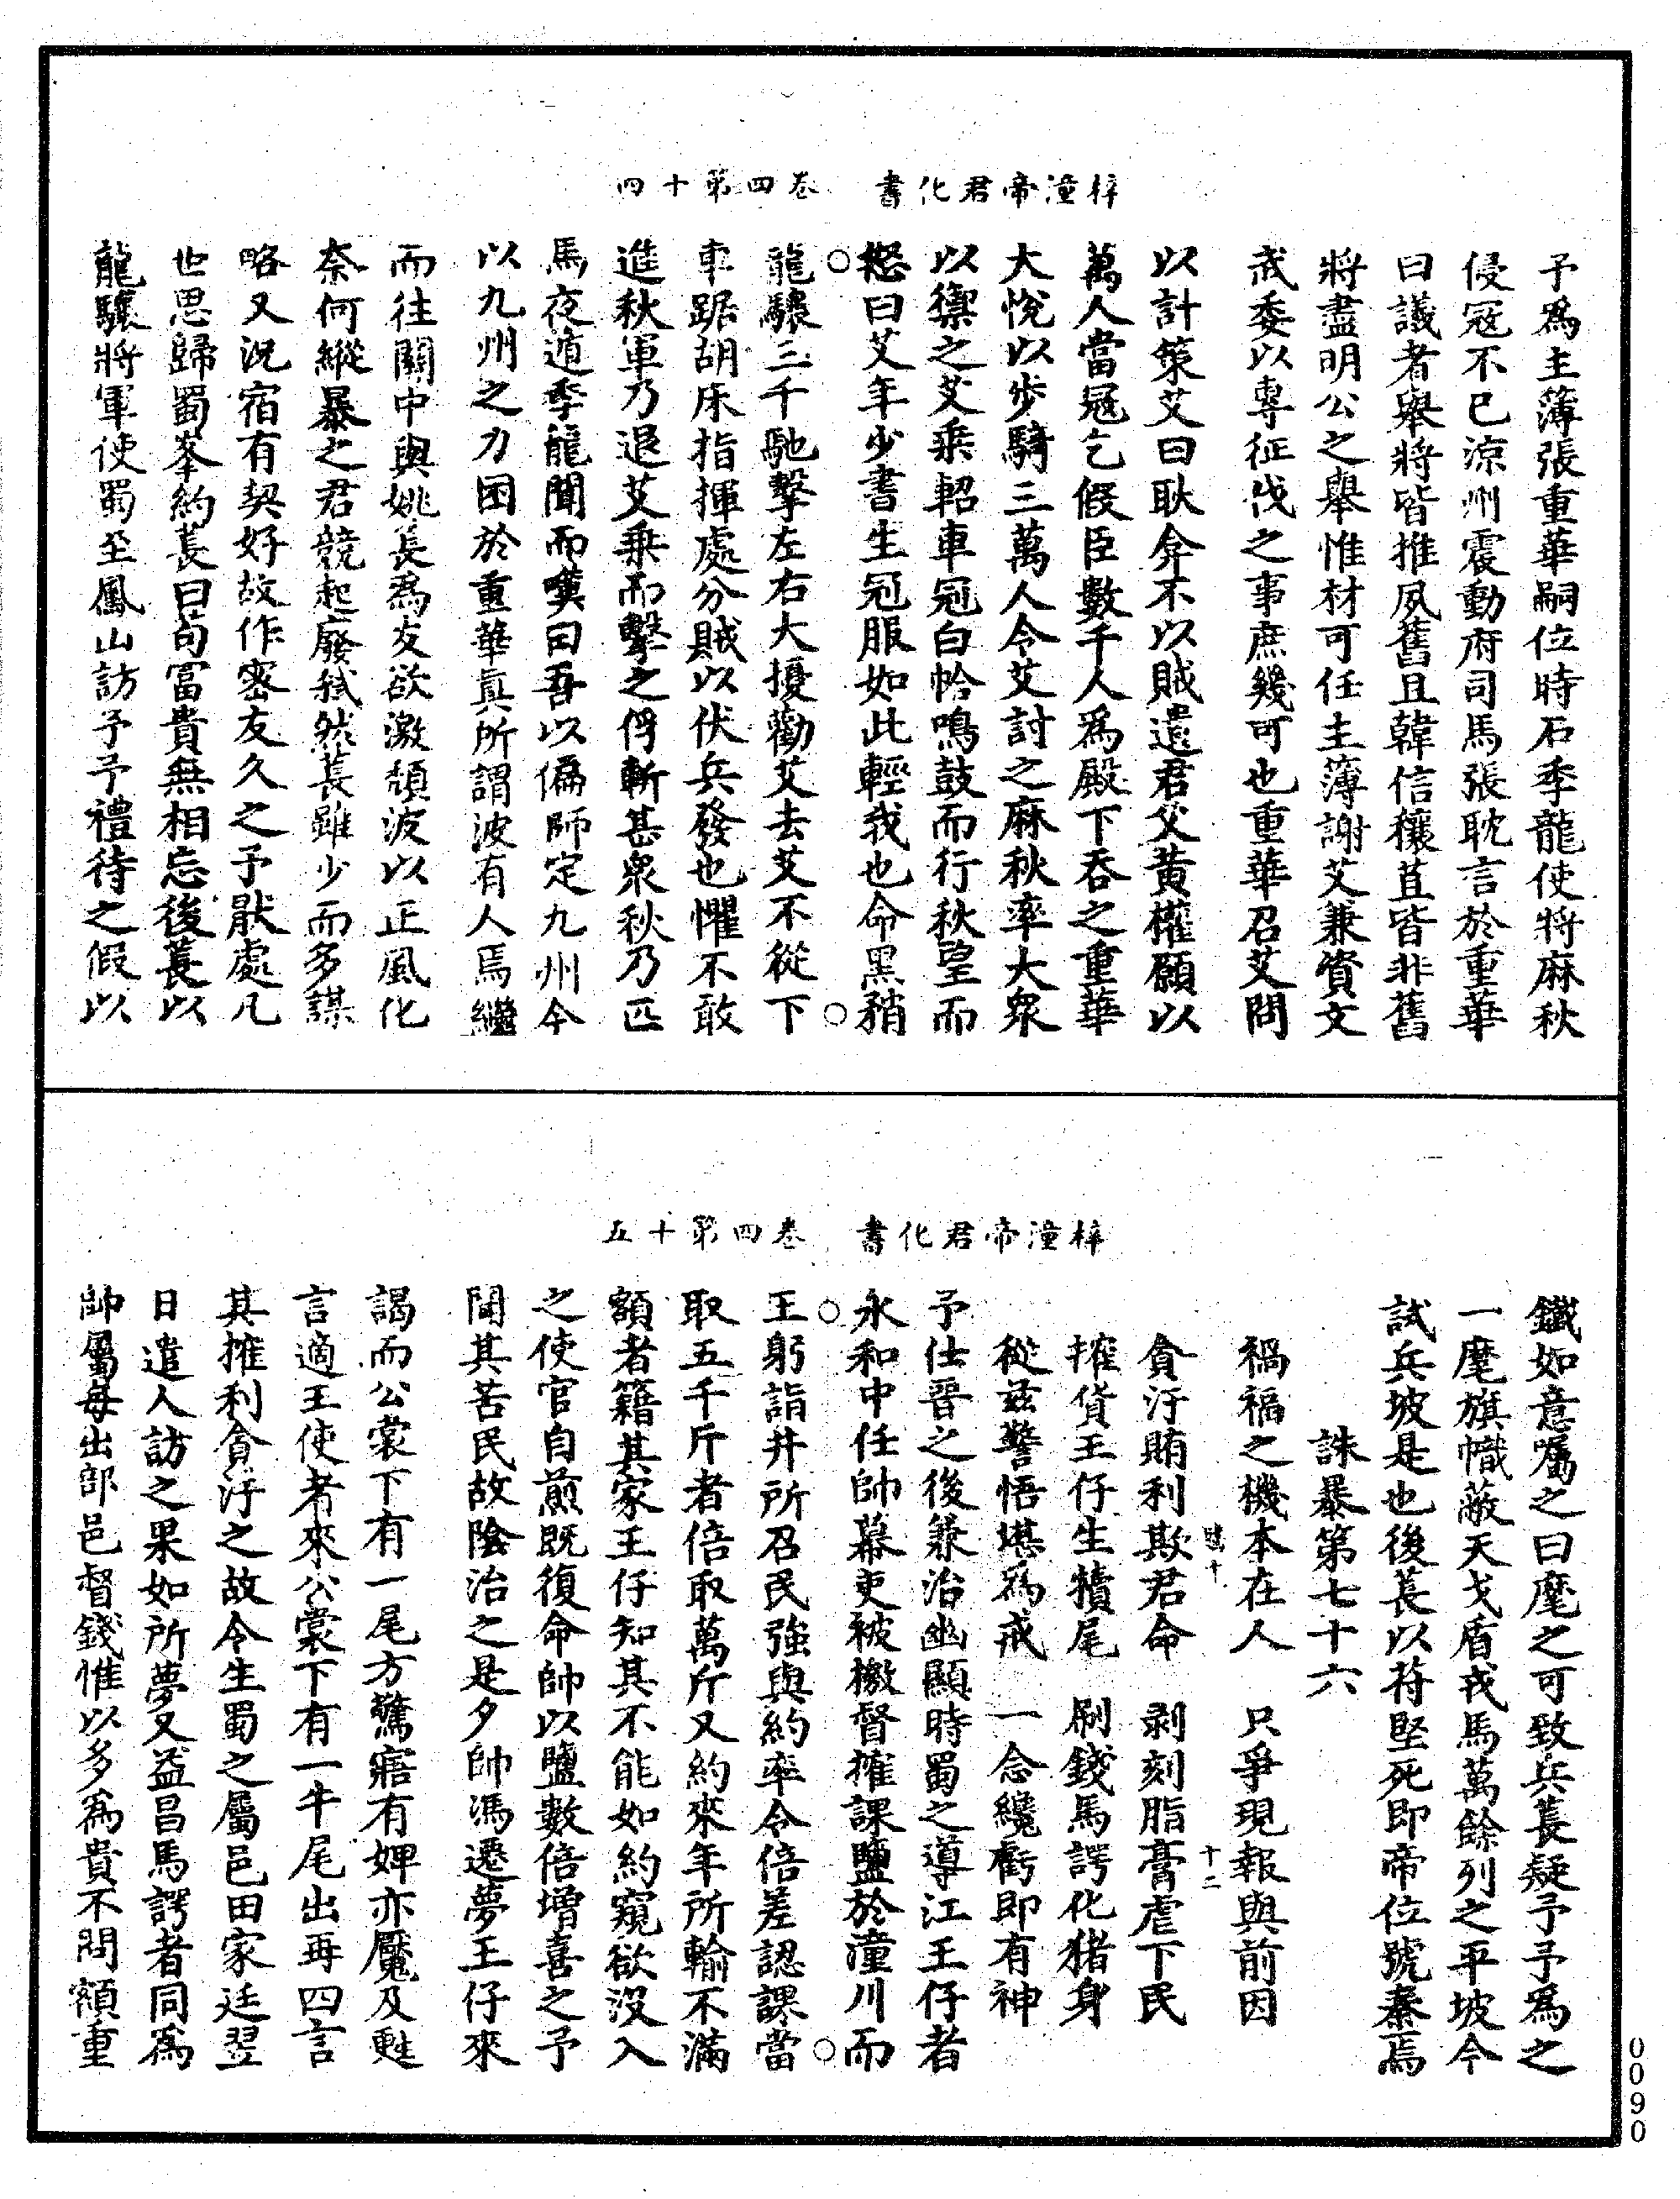 梓潼帝君化書　卷四第十四
予爲主薄張重華嗣位時石季龍使將麻秋
侵冦不已涼州震動府司馬張耽言於重華
曰議者舉將皆推夙舊且韓信穰苴皆非舊
將盡明公之舉惟材可任主薄謝艾兼資文
武委以專征伐之事庶幾可也重華召艾問
以計策艾曰耿弇不以賊遺君父黃權願以
萬人當冦乞假臣數千人爲殿下吞之重華
大悅以步騎三萬人令艾討之麻秋率大衆
以禦之艾乘軺車冠白帢鳴鼓而行秋望而
怒曰艾年少書生冠服如此輕我也命黑矟
龍驤三千馳擊左右大擾勸艾去艾不從下
車踞胡床指揮處分賊以伏兵發也懼不敢
進秋軍乃退艾乘而擊之俘斬甚衆秋乃匹
馬夜遁季龍聞而嘆曰吾以偏師定九州今
以九州之力困於重華眞所謂波有人焉繼
而往關中與姚萇爲友欲激頹波以正風化
奈何縱暴之君競起廢弒然萇雖少而多謀
略又況宿有契好故作密友久之予猒處凡
世思歸蜀峯約萇曰苟富貴無相忘後萇以
龍驤將軍使蜀至鳳山訪予予禮待之假以
梓潼帝君化書　卷四第十五
鐵如意囑之曰麾之可致兵萇疑予予爲之
一麾旗幟蔽天戈盾戎馬萬餘列之平坡今
試兵坡是也後萇以苻堅死即帝位號秦焉
誅暴第七十六
禍福之機本在人　只爭現報與前因
貪汙賄利欺君命　剥刻脂膏虐下民
搉貨王仔生犢尾　刷錢馬諤化猪身
從兹警悟堪爲戒　一念纔虧即有神
予仕晉之後兼治幽顯時蜀之導江王仔者
永和中任帥幕吏被檄督搉課鹽於潼川而
王躬詣井所召民強與約率令倍差認課當
取五千斤者倍取萬斤又約來年所輸不滿
額者籍其家王仔知其不能如約窺欲沒入
之使官自煎既復命帥以鹽數倍增喜之予
聞其苦民故陰治之是夕帥馮遷夢王仔來
謁而公裳下有一尾方驚寤有婢亦魘及甦
言適王使者來公裳下有一牛尾出再四言
其搉利貪汙之故令生蜀之屬邑田家廷翌
日遣人訪之果如所夢又益昌馬諤者同爲
帥屬每出部邑督錢惟以多爲貴不問額重
十二
0090